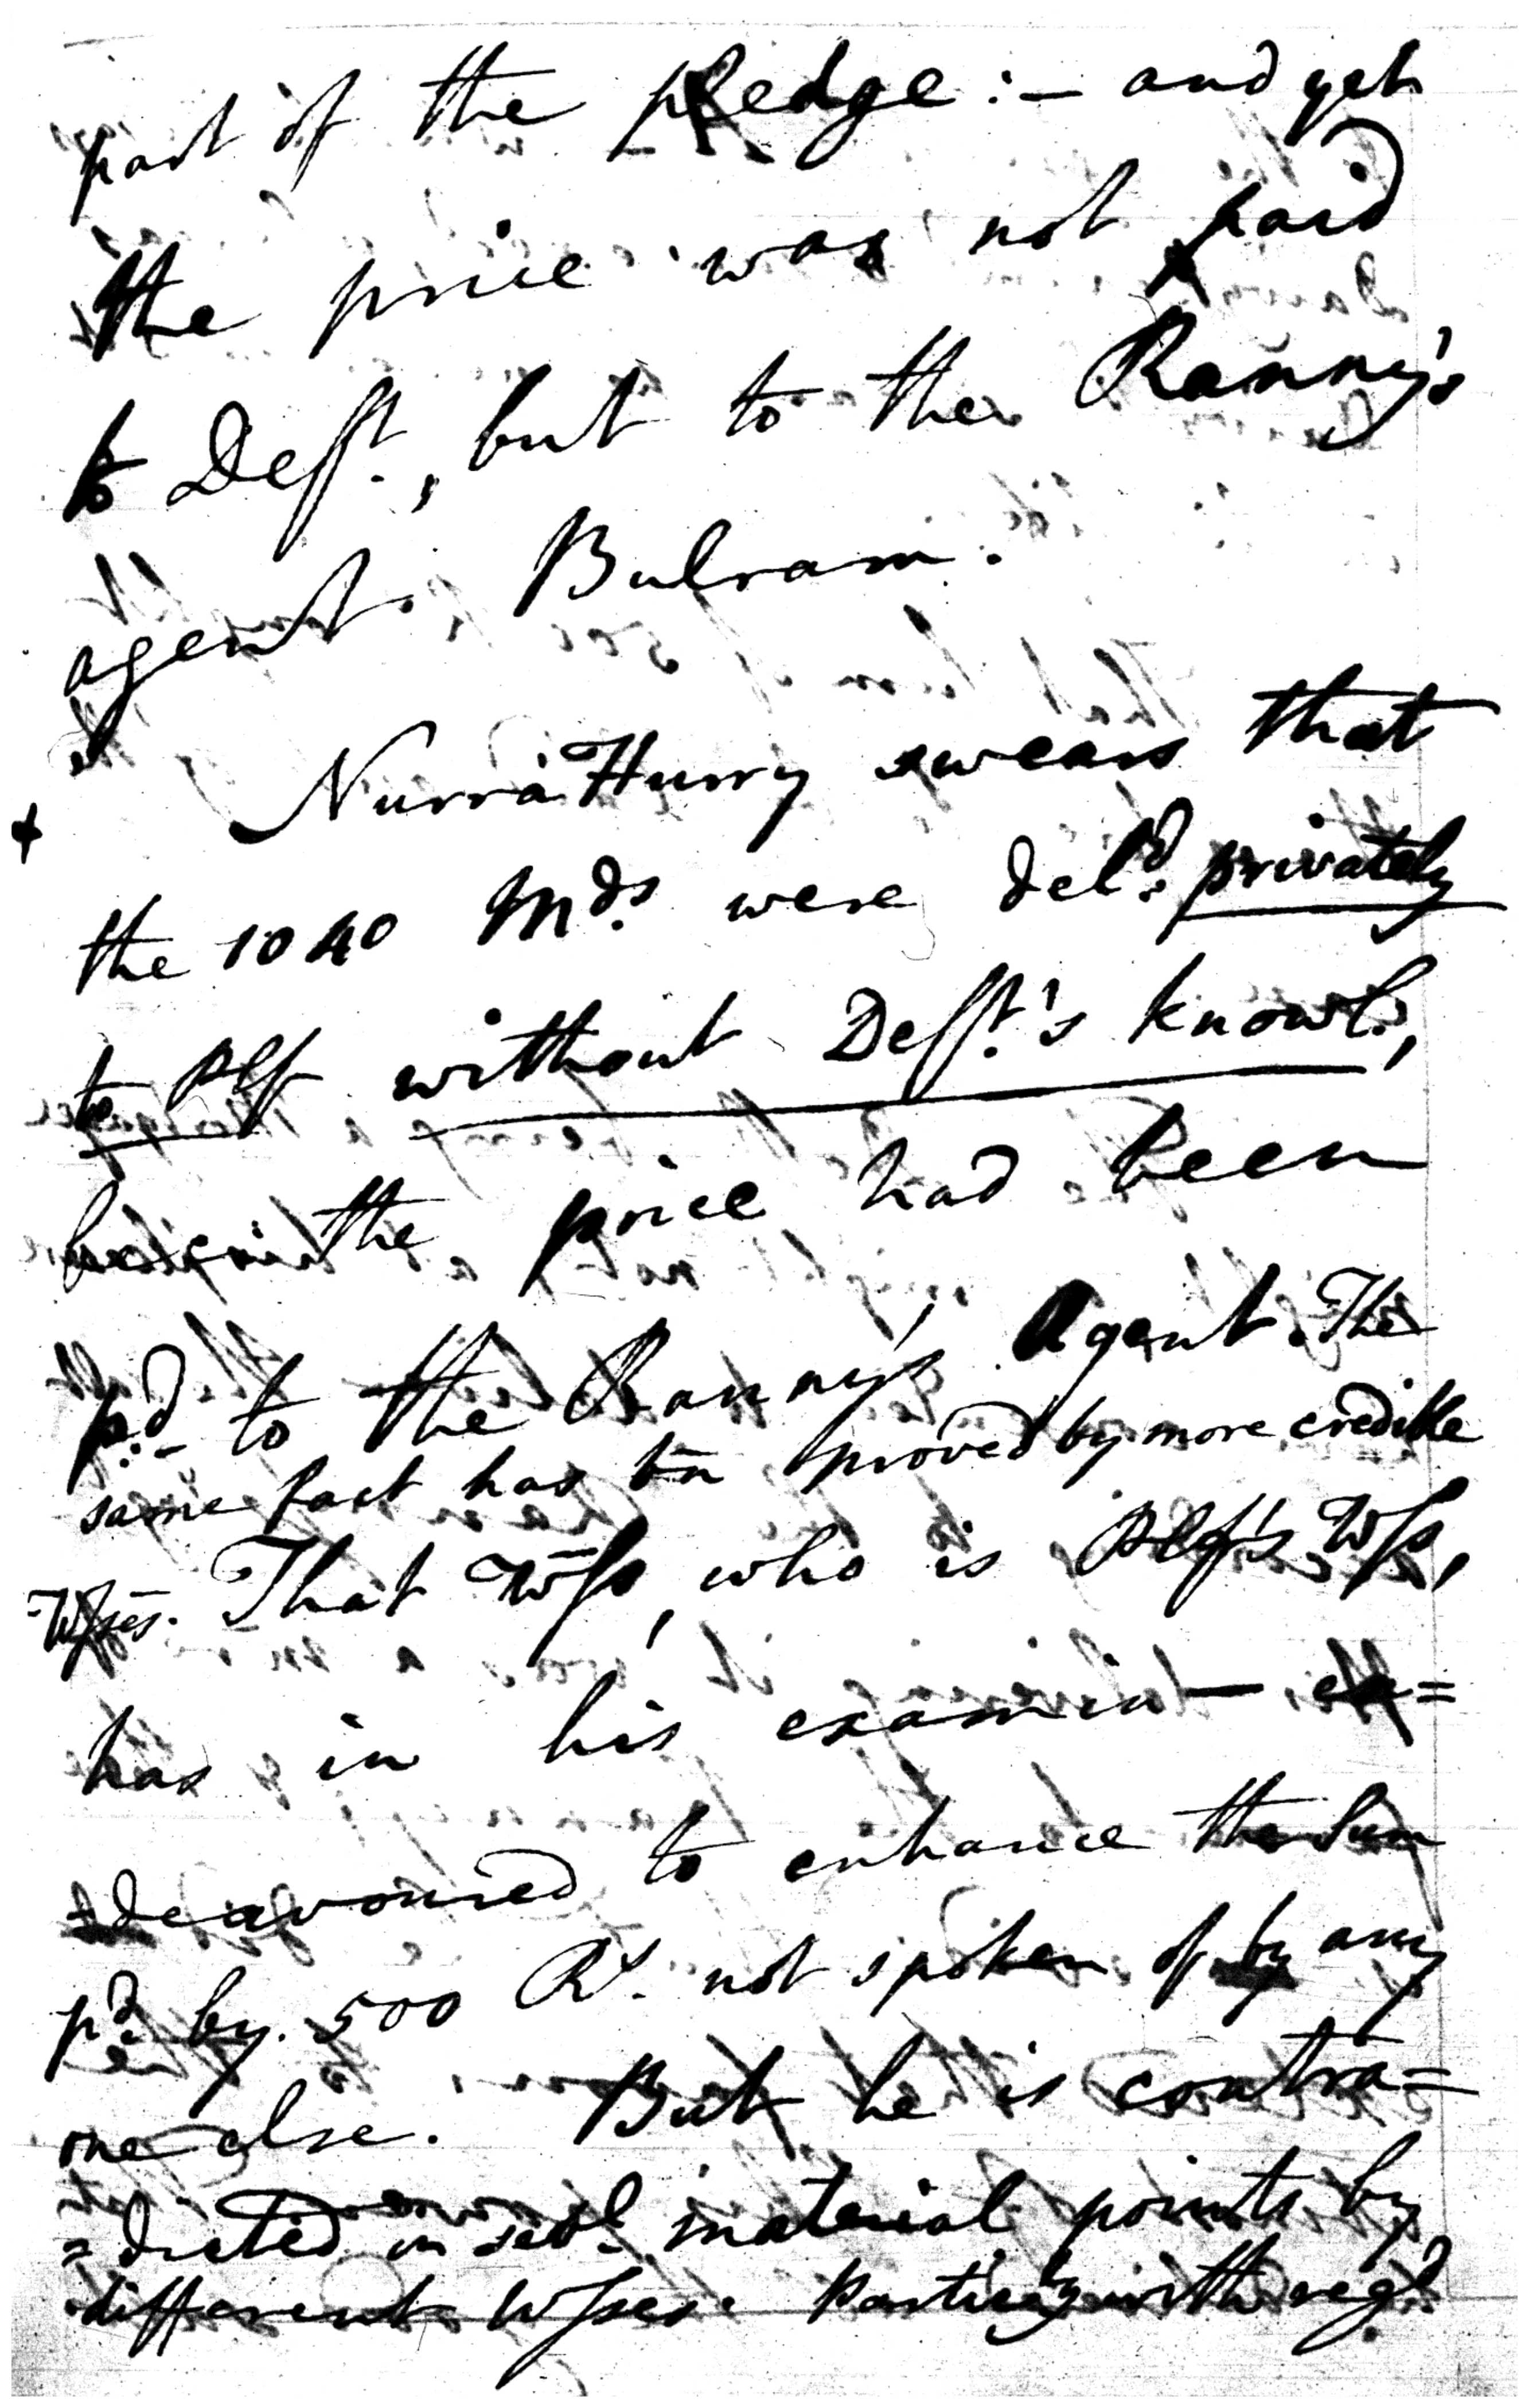 part of the pledge :— and yet
the price was not paid
to Deft., but to the Ranny's
agent Bulram.
NurraHurry swears that
+
the 1040 Mds. were deld. privately
to Plf without Deft.'s knowl.,
the price had been
pd. to the Ranny's Agent. The
same fact has bn proved by more credible
Wsses. That Wss, who is Plf's Wss,
has in his examin— en=
=deavoured to enhance the Sum
pd. by 500 Rs. not spoken of by any
one else. But he is contra=
=dicted in sevl. material points by
different Wsses. Particly with regd.